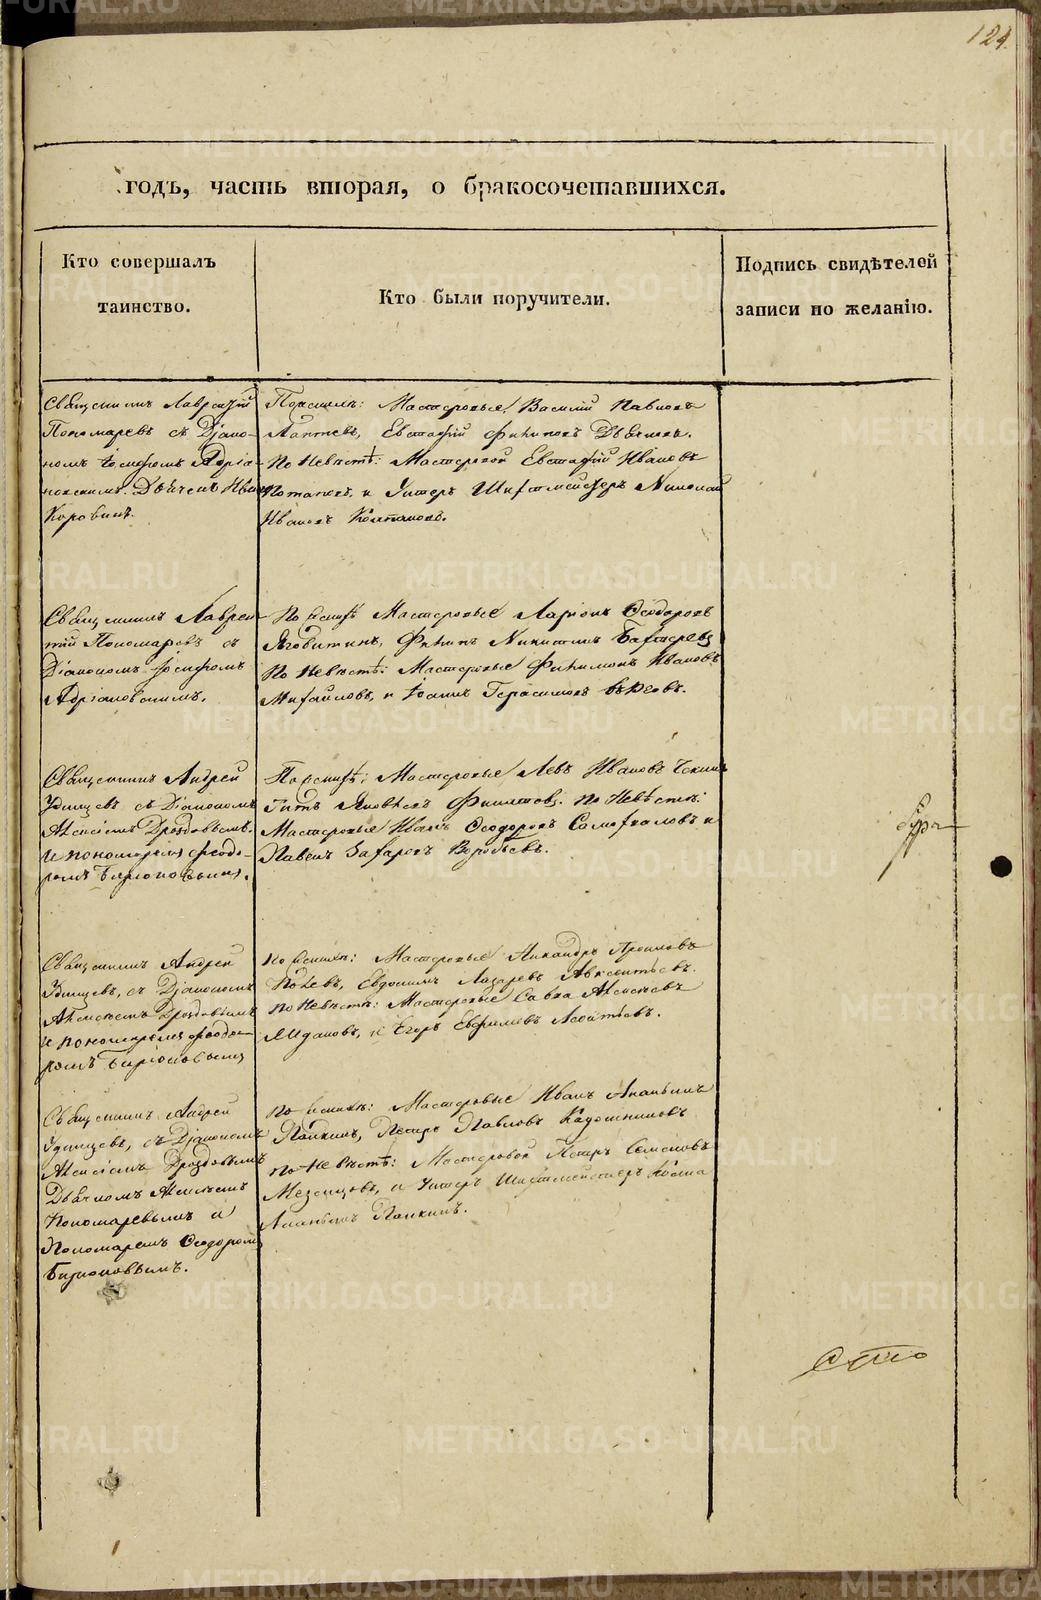 124
годъ, часть вторая, о бракосочетавшихся.
Кто совершалъ
таинство.
Кто были поручители.
Подпись свидѣтелей
записи по желанію.
Священникъ Лаврентій
Пономаревъ съ Діако-
номъ Іосифомъ Адріа-
новскимъ. Дьячекъ Иванъ
Коровинъ.
Мастеровые, Василій Павловъ
Лаптевъ, Евстафій Филиповъ
По Невѣстѣ: Мастеровой Евстафій Ивановъ
Потаповъ, и Унтеръ Шихтмейстеръ Николай
Ивановъ Колпаковъ.
Священникъ Лаврен-
тій Пономаревъ съ
Діакономъ Іосифомъ
Адріановскимъ.
По Женихѣ Мастеровые Ларіонъ Ѳеодоровъ
Яговитинъ, Филипъ Никитинъ
По Невѣстѣ: Мастеровые Филимонъ Ивановъ
Михайловъ, и Іоаннъ Герасимовъ
Священникъ Андрей
Удинцевъ съ Діакономъ
Алексіемъ Дроздовымъ
и пономаремъ Ѳеодо-
ромъ Бирюковымъ.
По женихѣ: Мастеровые Левъ Ивановъ
Титъ Яковлевъ Филатовъ. По Невѣстѣ:
Мастеровые Иванъ Ѳеодоровъ Самохваловъ и
Павелъ Захаровъ Воробьевъ.
Священникъ Андрей
Удинцевъ, съ Діакономъ
Алексіемъ Дроздовымъ
и пономаремъ Ѳеодо-
ромъ Бирюковымъ
По женихѣ: Мастеровые
Евдокимъ Лазаревъ
По Невѣстѣ: Мастеровые Савва Алексѣевъ
и Егоръ Евфимовъ Леонтьевъ.
Священникъ Андрей
Удинцевъ, съ Діакономъ
Алексіемъ Дроздовымъ
Дьячкомъ Алексѣемъ
Пономаревымъ и
Пономаремъ Ѳеодоромъ
Бирюковымъ.
По женихѣ: Мастеровые Иванъ Ананьинъ
Папкинъ, Петръ Павловъ Кадошниковъ
По Невѣстѣ: Мастеровой Петръ Семеновъ
Мезенцовъ, и Унтеръ Шихтмейстеръ Косма
Ананьинъ Папкинъ.
METRIKI.GASO-URAL.RU